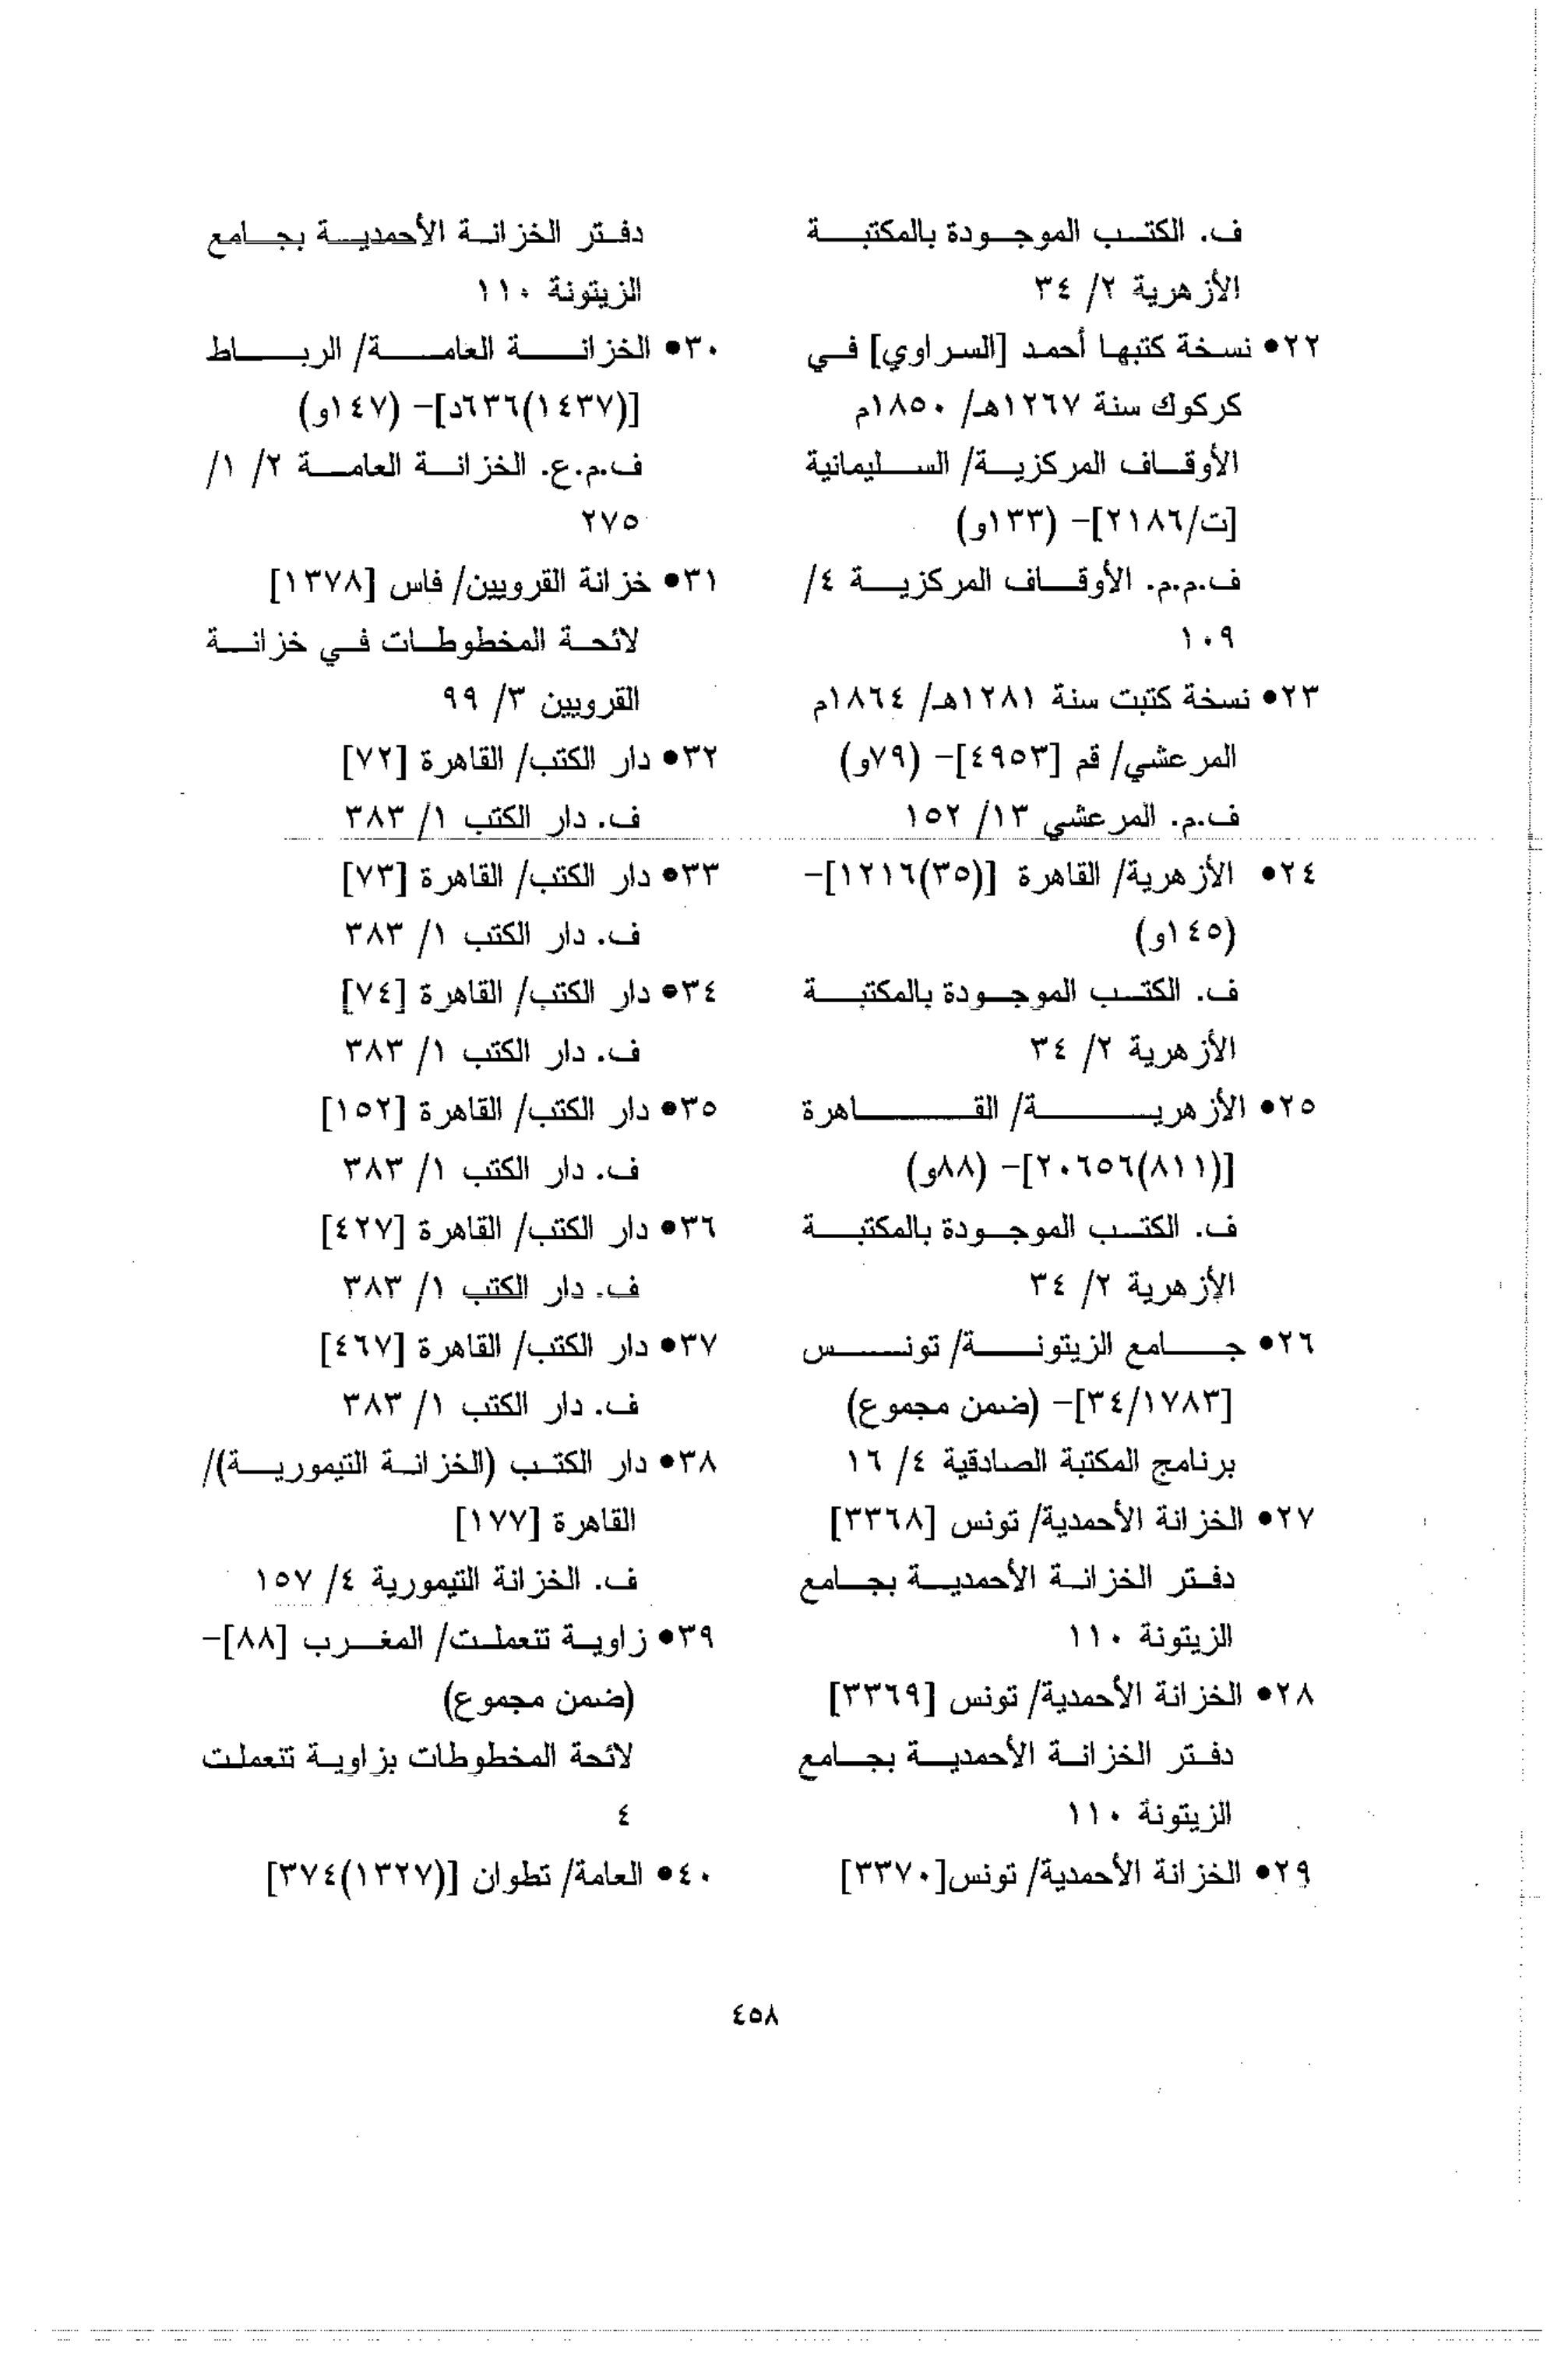 ف. الكتب الموجودة بالمكتبة
الأزهرية ٢/ ٣٤
٢٢• نسخة كتبها أحمد [السراوي] في
كركوك سنة ١٢٦٧هـ/ ١٨٥٠م
الأوقاف المركزية/ السليمانية
[ت/٢١٨٦]- (١٣٣و)
ف.م.م. الأوقاف المركزية ٤/
١٠٩
٢٣• نسخة كتبت سنة ١٢٨١هـ/ ١٨٦٤م
المرعشي/ قم [٤٩٥٣]- (٧٩و)
ف.م. المرعشي ١٣/ ١٥٢
٢٤• الأزهرية/ القاهرة [(٣٥)١٢١٦]-
(١٤٥و)
ف. الكتب الموجودة بالمكتبة
الأزهرية ٢/ ٣٤
٢٥• الأزهرية/ القاهرة
[(٨١١)٢٠٦٥٦]- (٨٨و)
ف. الكتب الموجودة بالمكتبة
الأزهرية ٢/ ٣٤
٢٦• جامع الزيتونة/ تونس
[٣٤/١٧٨٣]- (ضمن مجموع)
برنامج المكتبة الصادقية ٤/ ١٦
٢٧• الخزانة الأحمدية/ تونس [٣٣٦٨]
دفتر الخزانة الأحمدية بجامع
الزيتونة ١١٠
٢٨• الخزانة الأحمدية/ تونس [٣٣٦٩]
دفتر الخزانة الأحمدية بجامع
الزيتونة ١١٠
٢٩• الخزانة الأحمدية/ تونس[٣٣٧٠]
دفتر الخزانة الأحمدية بجامع
الزيتونة ١١٠
٣٠• الخزانة العامة/ الرباط
[(١٤٣٧)٦٣٦د]- (١٤٧و)
ف.م.ع. الخزانة العامة ٢/ ١/
٢٧٥
٣١• خزانة القرويين/ فاس [١٣٧٨]
لائحة المخطوطات في خزانة
القرويين ٣/ ٩٩
٣٢• دار الكتب/ القاهرة [٧٢]
ف. دار الكتب ١/ ٣٨٣
٣٣• دار الكتب/ القاهرة [٧٣]
ف. دار الكتب ١/ ٣٨٣
٣٤• دار الكتب/ القاهرة [٧٤]
ف. دار الكتب ١/ ٣٨٣
٣٥• دار الكتب/ القاهرة [١٥٢]
ف. دار الكتب ١/ ٣٨٣
٣٦• دار الكتب/ القاهرة [٤٢٧]
ف. دار الكتب ١/ ٣٨٣
٣٧• دار الكتب/ القاهرة [٤٦٧]
ف. دار الكتب ١/ ٣٨٣
٣٨• دار الكتب (الخزانة التيمورية)/
القاهرة [١٧٧]
ف. الخزانة التيمورية ٤/ ١٥٧
٣٩• زاوية تنعملت/ المغرب [٨٨]-
(ضمن مجموع)
لائحة المخطوطات بزاوية تنعملت
٤
٤٠• العامة/ تطوان [(١٣٢٧)٣٧٤]
٤٥٨